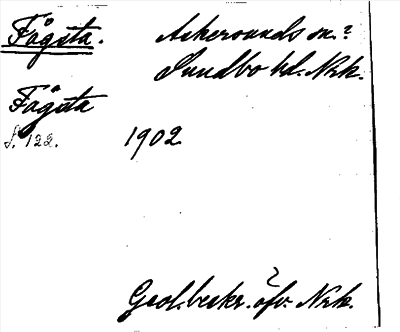 Fågsta. Askersunds sn.?
Sundbo hd. Nrk.
Fågsta
s. 122. 1902
Geol. beskr. öfv. Nrk.